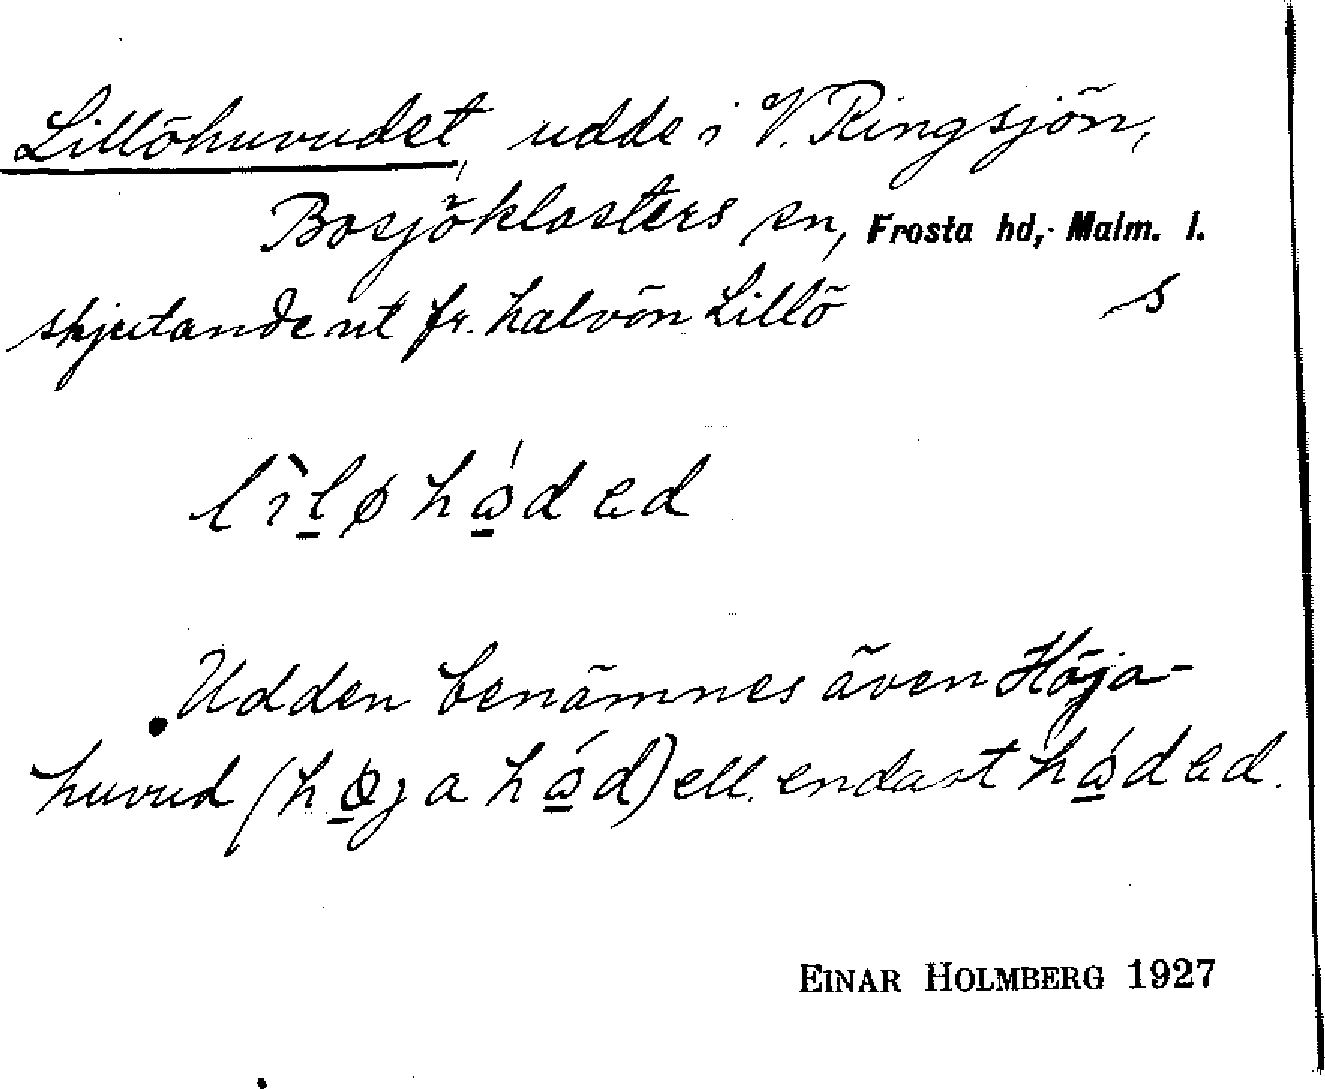 Lillöhuvudet, udde i V. Ringsjön,
Bosjöklosters sn, Frosta hd, Malm. l.
skjutande ut fr. halvön Lillö s
lìløhǻded
Udden benämnes även Höja-
huvud (høja hǻd) ell. endast hǻded.
EINAR HOLMBERG 1927